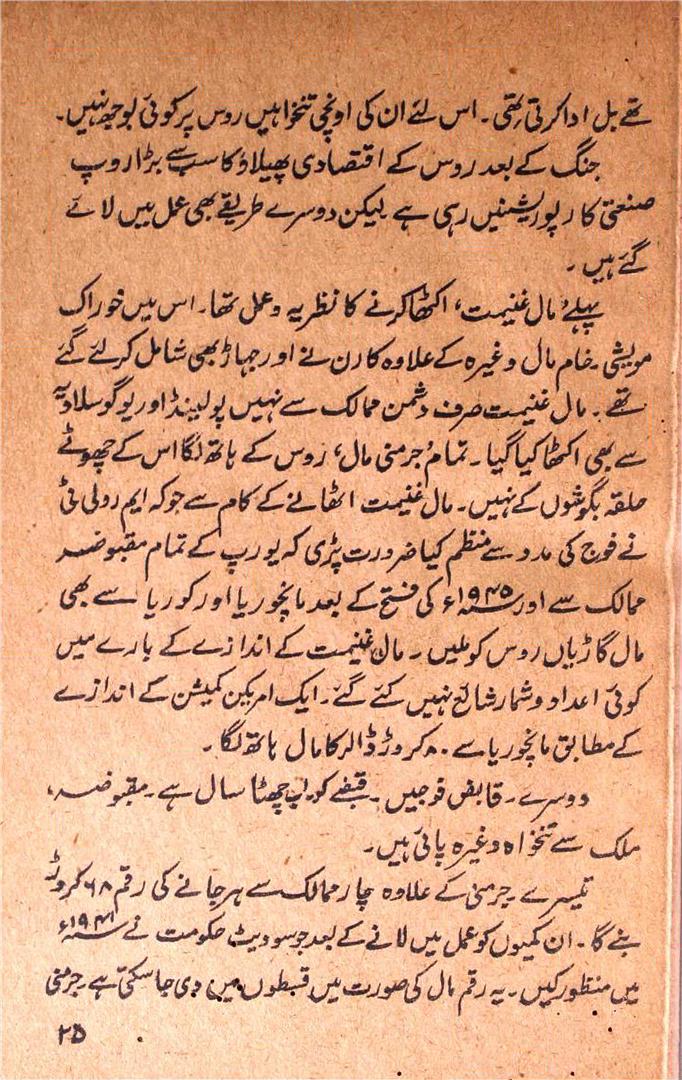 تھے بل ادا کرتی تھی۔ اس لئے ان کی اونچی تنخواہیں روس پر کوئی بوجھ نہیں۔
جنگ کے بعد روس کے اقتصادی پھیلاؤ کا سب سے بڑا روپ
صنعتی کارپوریشنیں رہی ہے لیکن دوسرے طریقے بھی عمل میں لائے
گئے ہیں۔
پہلے 'مال غنیمت' اکٹھا کرنے کا نظریہ و عمل تھا۔ اس میں خوراک
مویشی۔ خام مال وغیرہ کے علاوہ کارخانے اور جہاز بھی شامل کر لئے گئے
تھے۔ مال غنیمت صرف دشمن ممالک سے نہیں پولینڈ اور یوگوسلاویہ
سے بھی اکٹھا کیا گیا۔ تمام 'جرمنی مال' روس کے ہاتھ لگا اس کے چھوٹے
حلقہ بگوشوں کے نہیں۔ مال غنیمت اٹھانے کے کام سے جو کہ ایم رولی ٹی
نے فوج کی مدد سے منظم کیا ضرورت پڑی کہ یورپ کے تمام مقبوضہ
ممالک سے اور ۱۹۴۵ء کی فتح کے بعد مانچوریا اور کوریا سے بھی
مال گاڑیاں روس کو ملیں۔ مال غنیمت کے اندازے کے بارے میں
کوئی اعداد و شمار شائع نہیں کئے گئے۔ ایک امریکن کمیشن کے اندازے
کے مطابق مانچوریا سے ۸۰ کروڑ ڈالر کا مال ہاتھ لگا۔
دوسرے۔ قابض فوجیں۔ قبضے کو اب چھٹا سال ہے۔ مقبوضہ،
ملک سے تنخواہ وغیرہ پاتی ہیں۔
تیسرے جرمنی کے علاوہ چار ممالک سے ہرجانے کی رقم ۶۸ کروڑ
بنے گا۔ ان کمیوں کو عمل میں لانے کے بعد جو سوویٹ حکومت نے ۱۹۴۱ء
میں منظور کیں۔ یہ رقم مال کی صورت میں قسطوں میں دی جا سکتی ہے۔ جرمنی
۲۵